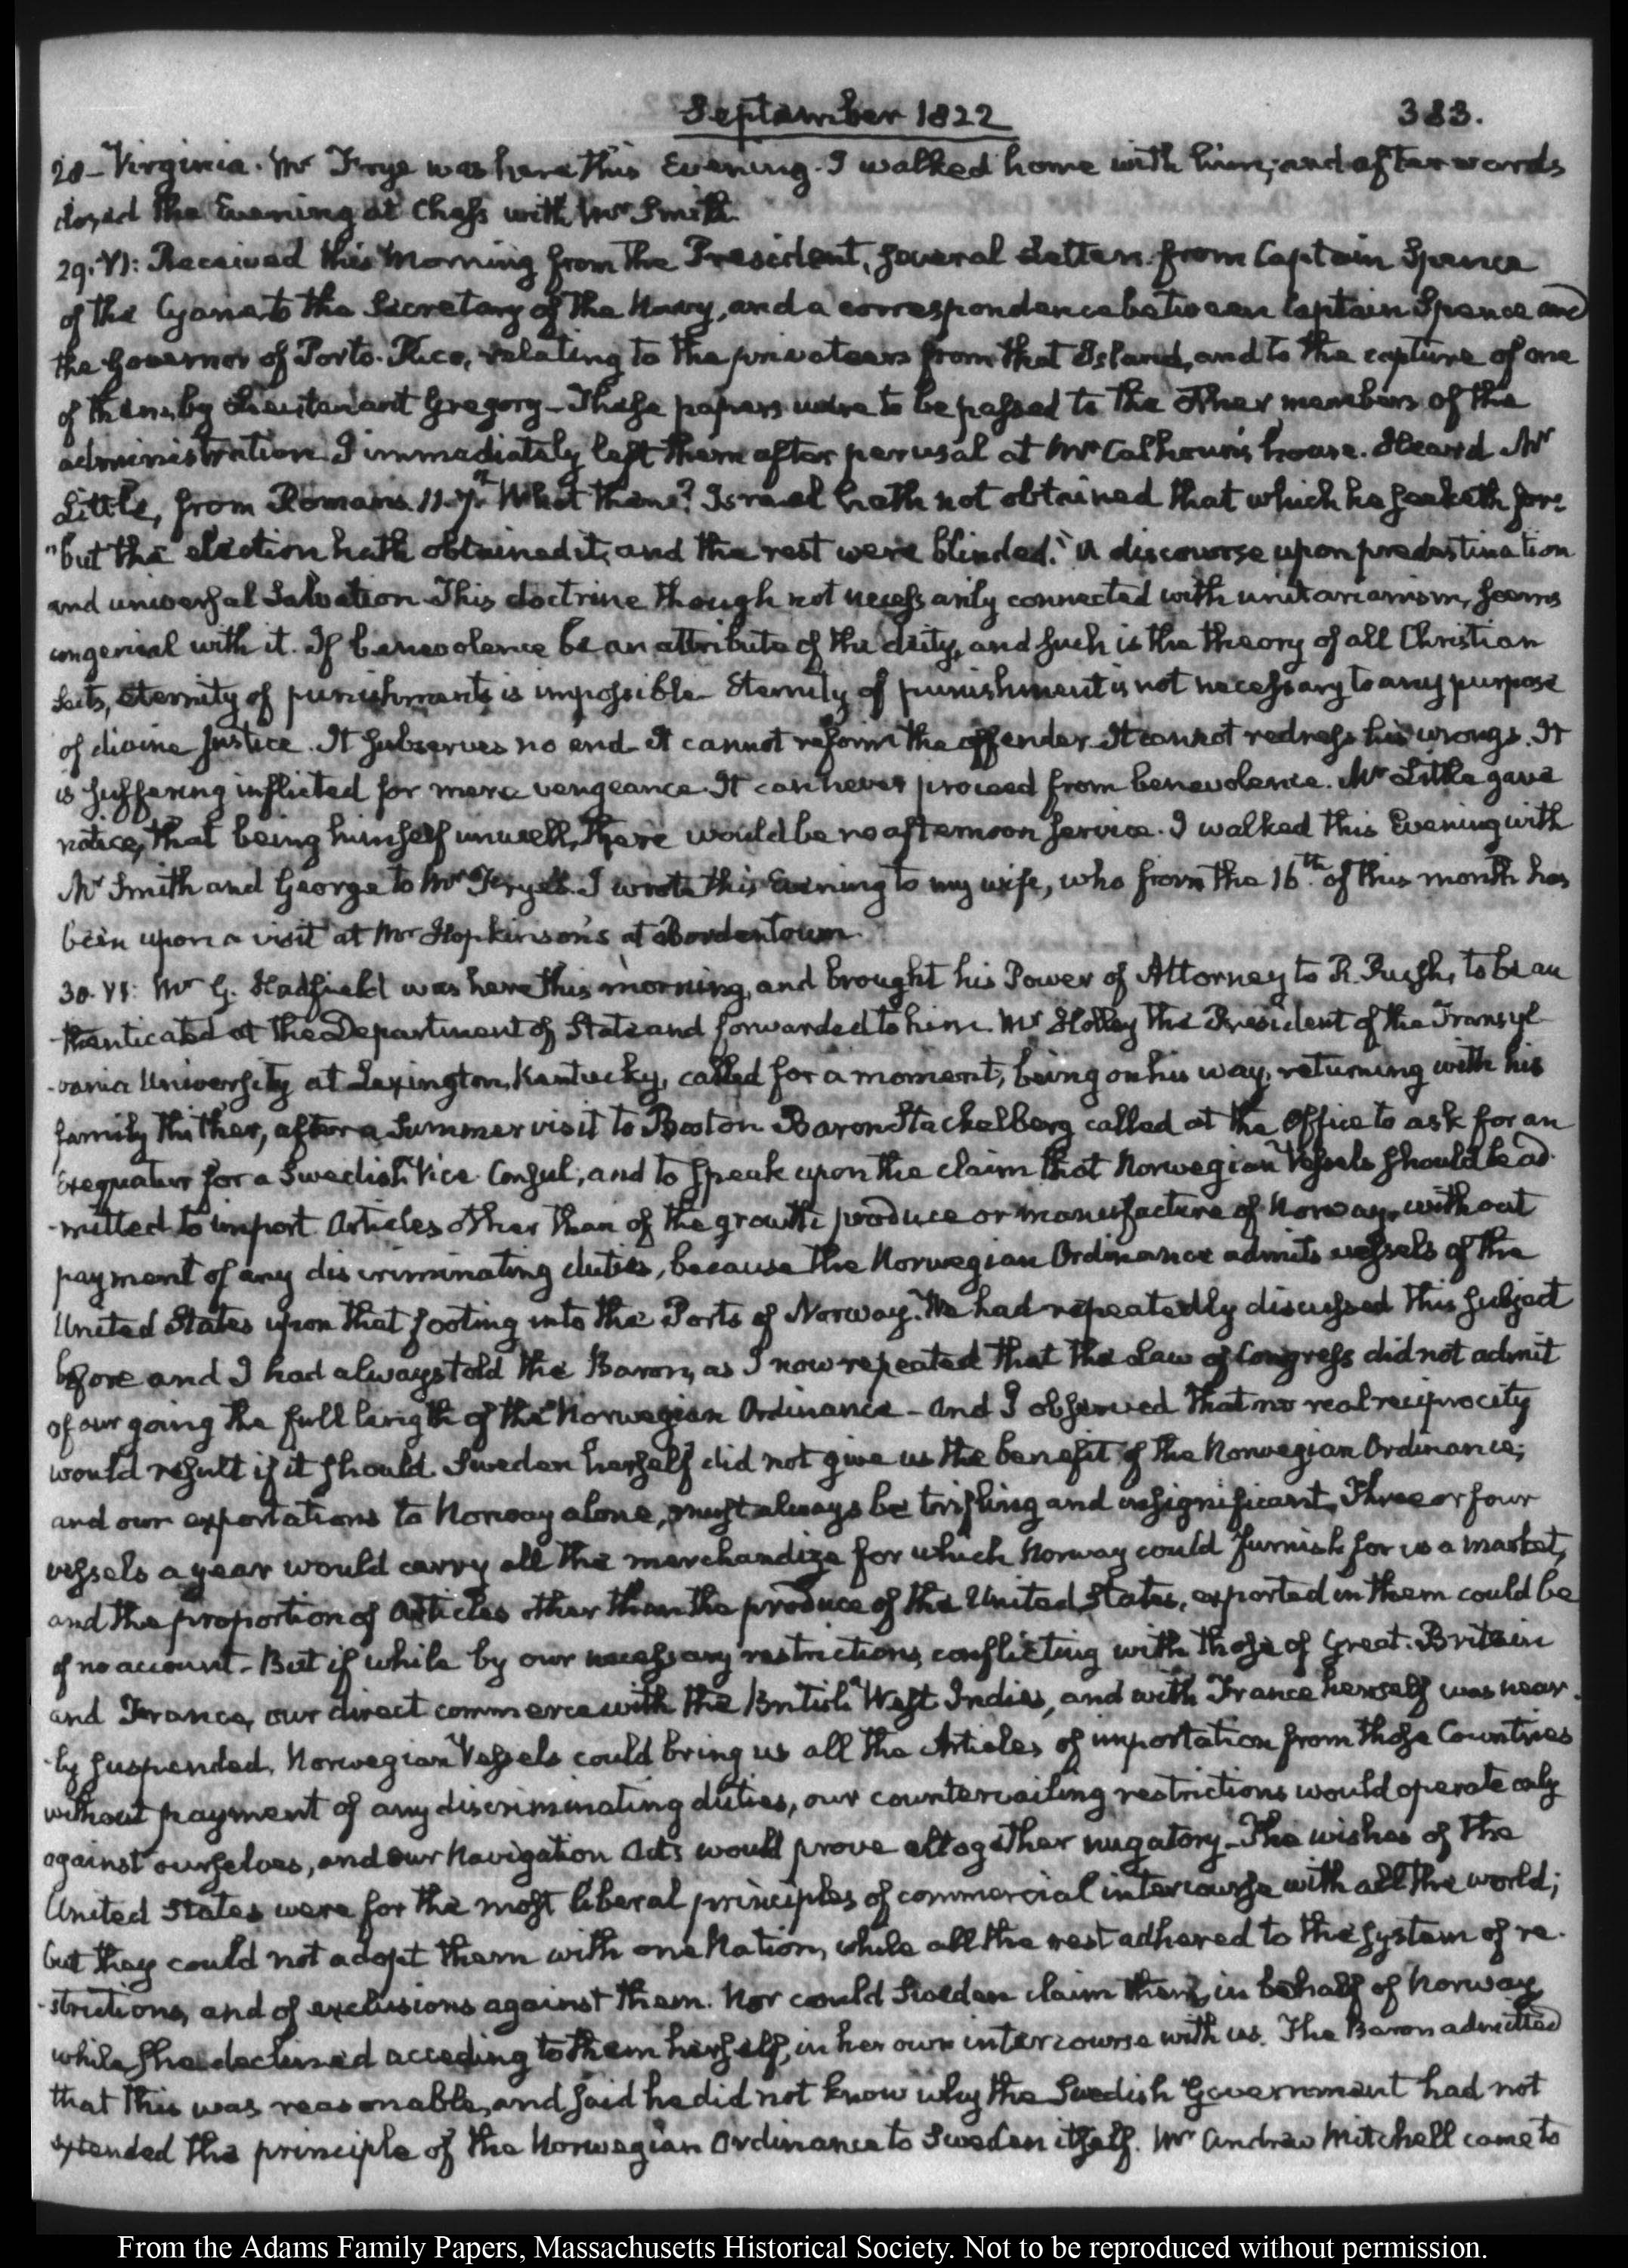 September 1822
383.
28– Virginia. Mr Frye was here this Evening. I walked home with him; and afterwards
closed the Evening at Chess with Mr Smith.
29. VI: Received this Morning from the President, several Letters from Captain Spence
of the Cyane, to the Secretary of the Navy, and a correspondence between Captain Spence and
the Governor of Porto-Rico, relating to the privateers from that Island, and to the capture of one
of them, by Lieutenant Gregory– These papers were to be passed to the other members of the
administration. I immediately left them after perusal at Mr Calhoun's house. Heard Mr
Little, from Romans 11. 7. What then? Israel hath not obtained that which he seeketh for:
"but the election hath obtained it, and the rest were blinded." A discourse upon predestination
and universal Salvation. This doctrine though not necessarily connected with unitarianism, seems
congenial with it. If benevolence be an attribute of the deity, and such is the theory of all Christian
Sects, eternity of punishments is impossible– Eternity of punishment is not necessary to any purpose
of divine Justice. It subserves no end– it cannot reform the offender. It cannot redress his wrongs. It
is suffering inflicted for mere vengeance. It can never proceed from benevolence. Mr Little gave
notice, that being himself unwell, there would be no afternoon service. I walked this Evening with
Mr Smith and George to Mr Frye's. I wrote this Evening to my wife, who from the 16th of this month has
been upon a visit at Mr Hopkinson's at Bordentown.
30. VI: Mr G. Hadfield was here this morning, and brought his Power of Attorney to R. Rush, to be au
-thenticated at the Department of State and forwarded to him. Mr Holley the President of the Transyl
-vania University at Lexington, Kentucky, called for a moment, being on his way, returning with his
family thither, after a Summer visit to Boston. Baron Stackelberg called at the Office to ask for an
Exequatur for a Swedish Vice Consul; and to speak upon the claim that Norwegian Vessels should be ad-
-mitted to import Articles other than of the growth produce or manufacture of Norway, without
payment of any discriminating duties, because the Norwegian Ordinance admits vessels of the
United States upon that footing into the Ports of Norway. We had repeatedly discussed this subject
before and I had always told the Baron, as I now repeated that the Law of Congress did not admit
of our going the full length of the Norwegian Ordinance– And I observed that no real reciprocity
would result if it should. Sweden herself did not give us the benefit of the Norwegian Ordinance;
and our exportations to Norway alone, must always be trifling and insignificant. Three or four
vessels a year would carry all the merchandize for which Norway could furnish for us a market,
and the proportion of Articles other than the produce of the United States, exported in them could be
of no account– But if while by our necessary restrictions, conflicting with those of Great-Britain
and France, our direct commerce with the British West Indies, and with France herself was near-
-ly suspended, Norwegian Vessels could bring us all the Articles of importation from those Countries
without payment of any discriminating duties, our countervailing restrictions would operate only
against ourselves, and our Navigation Acts would prove altogether nugatory– The wishes of the
United States were for the most liberal principles of commercial intercourse with all the world;
but they could not adopt them with one Nation, while all the rest adhered to the system of re-
-strictions, and of exclusions against them. Nor could Sweden claim them, in behalf of Norway,
while she declined acceding to them herself, in her own intercourse with us. The Baron admitted
that this was reasonable, and said he did not know why the Swedish Government had not
extended the principle of the Norwegian Ordinance to Sweden itself. Mr Andrew Mitchell came to
From the Adams Family Papers, Massachusetts Historical Society. Not to be reproduced without permission.